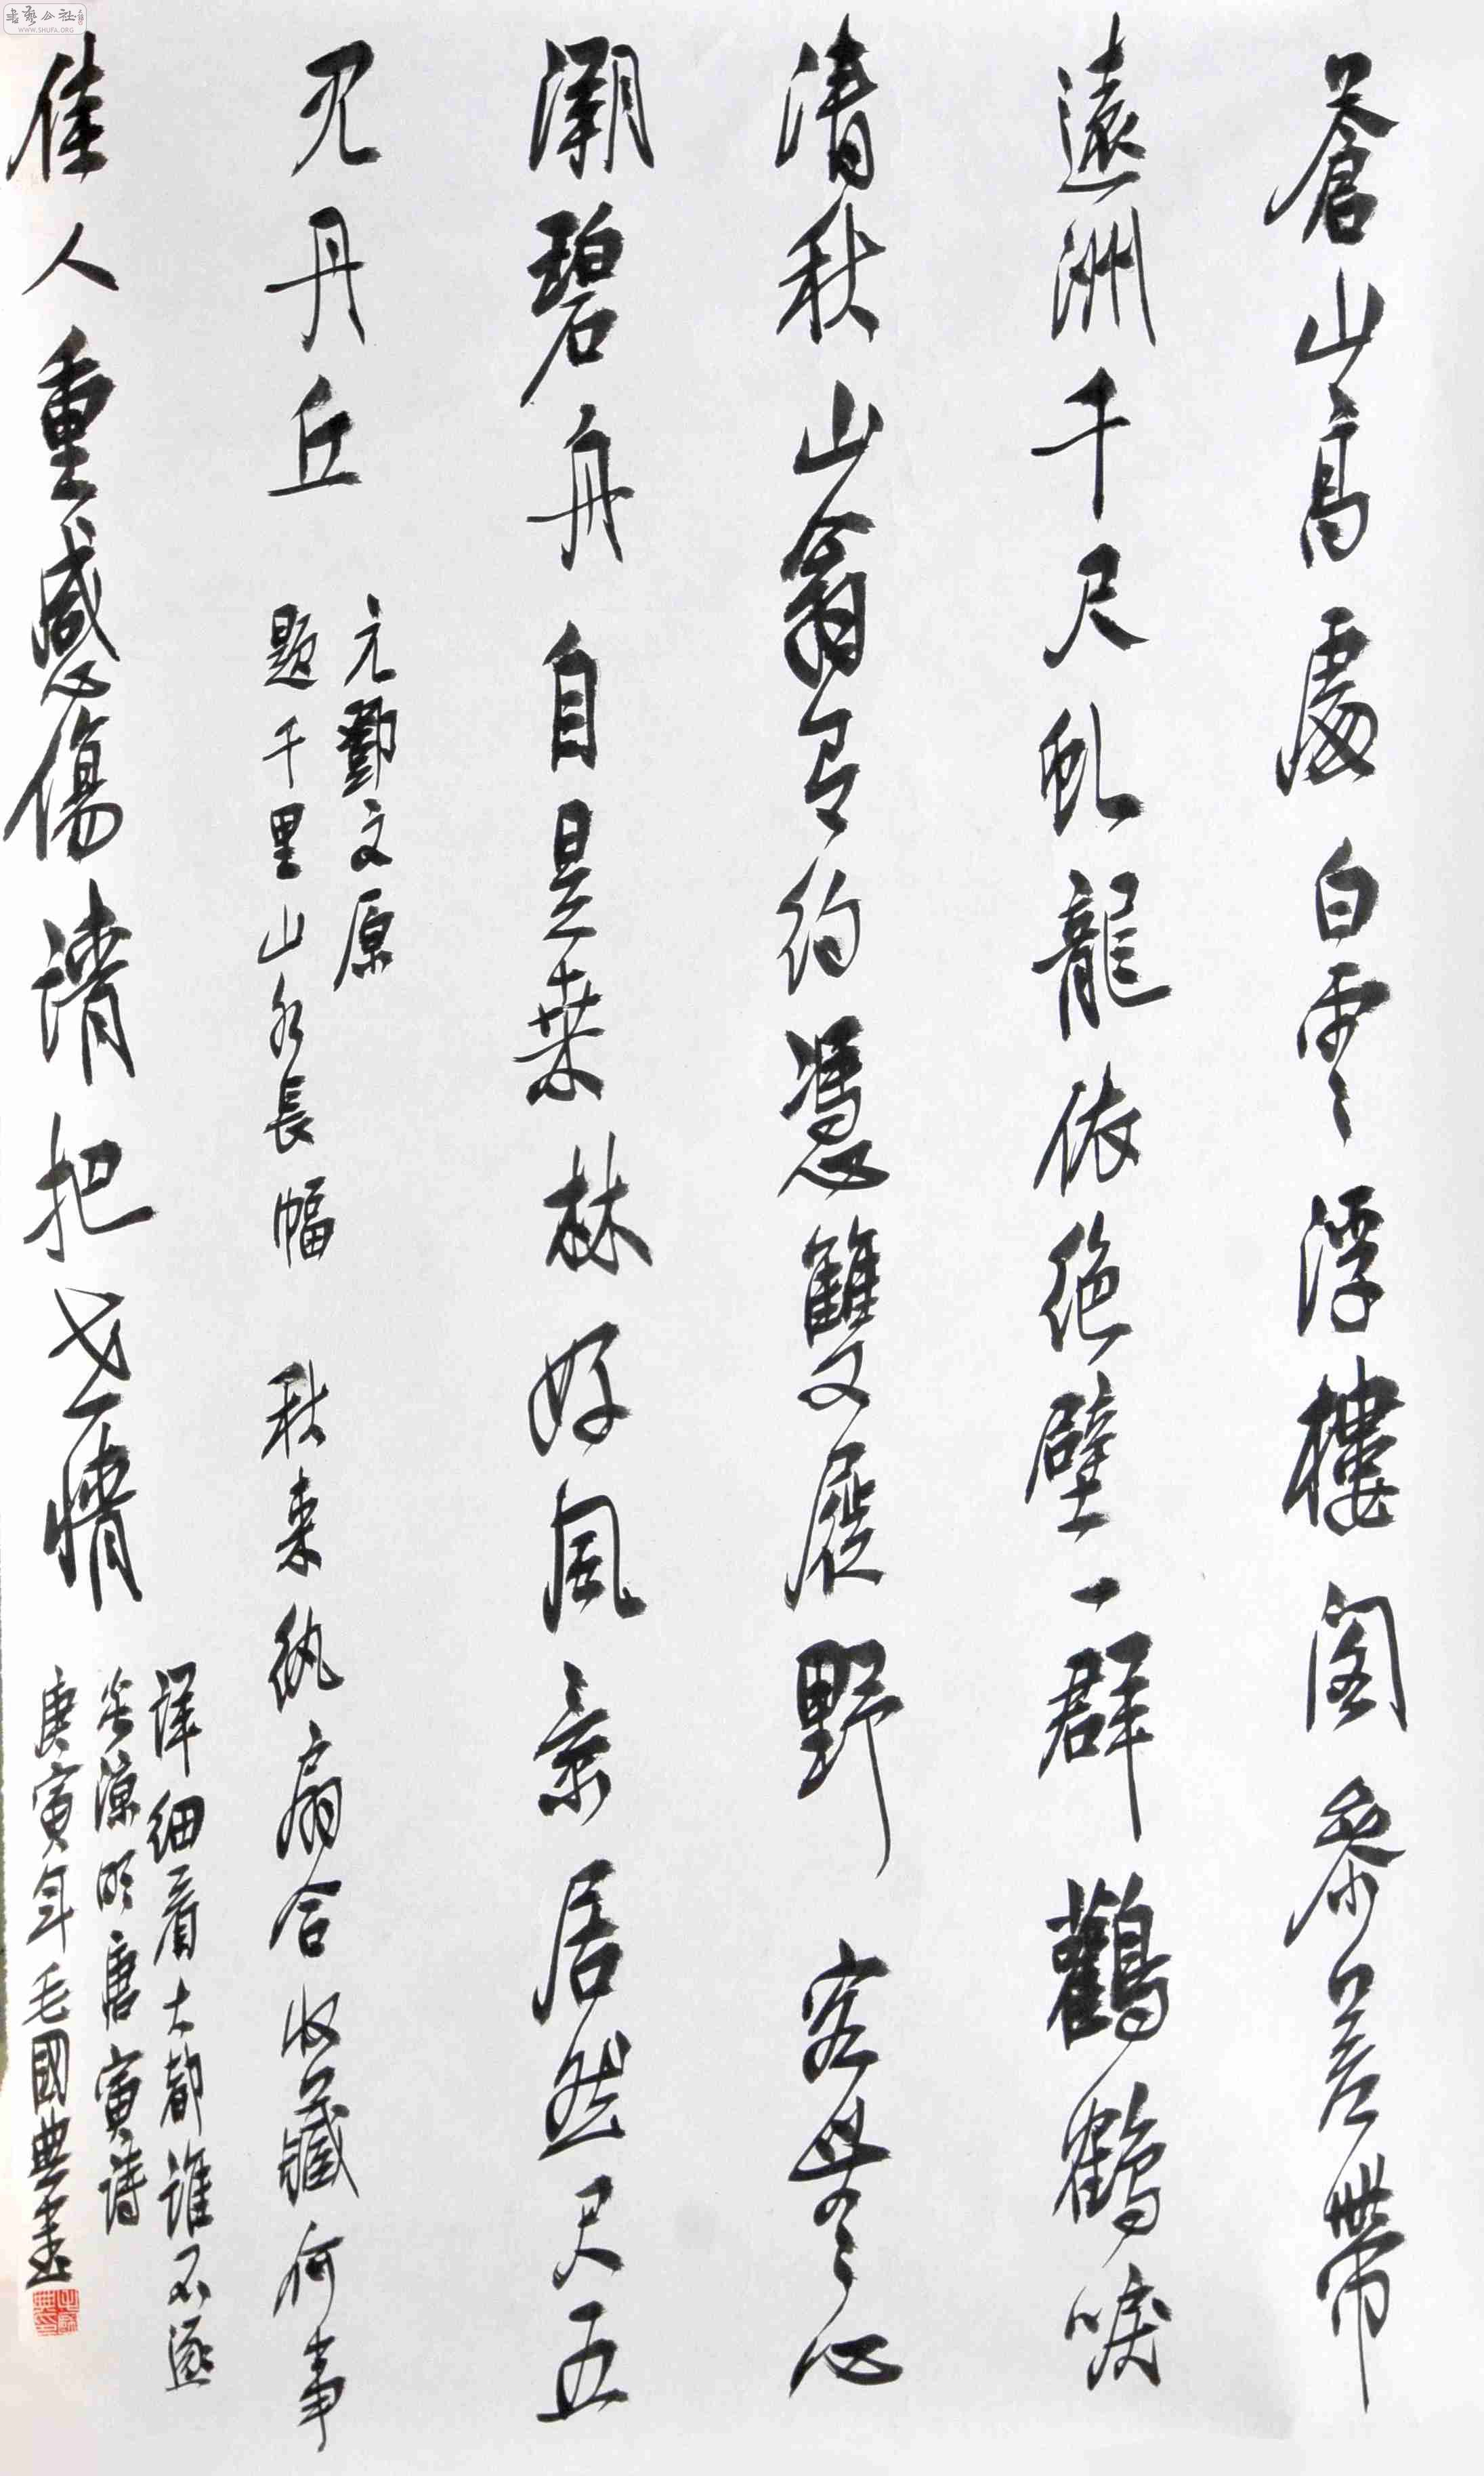 蒼山高處白雲浮樓閣參差帶
遠洲千尺虬龍依絕壁一群鸛鶴唳
清秋山翁有約憑雙屐野客無心
溯碧舟自是桒林好風景居然尺五
见丹丘
元鄧文原
題千里山水長幅
秋来紈扇合收藏何事
佳人重感傷請把世情
詳細看大都誰不逐
炎涼明唐寅詩
庚寅年毛國典書
書藝公社
WWW.SHUFA.ORG